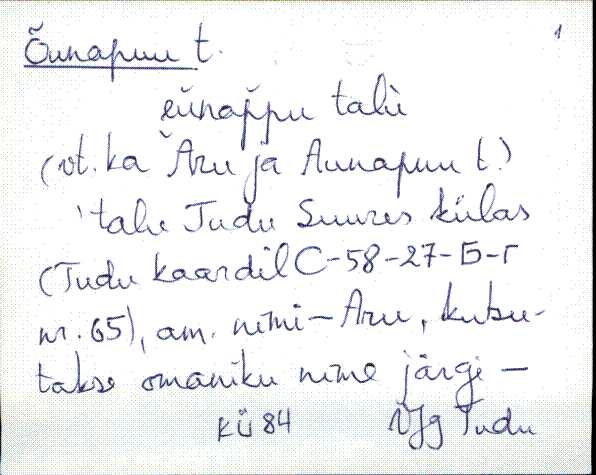 1
Õunapuu t.
eu̬nap̆pu talù
(vt. ka Aru ja Aunapuu t.)
'talu Tudu Suures külas
(Tudu kaardil C-58-27-Б-Г
nr. 65), am. nimi - Aru, kutsu-
takse omaniku nime järgi -
KÜ 84 VJg Tudu